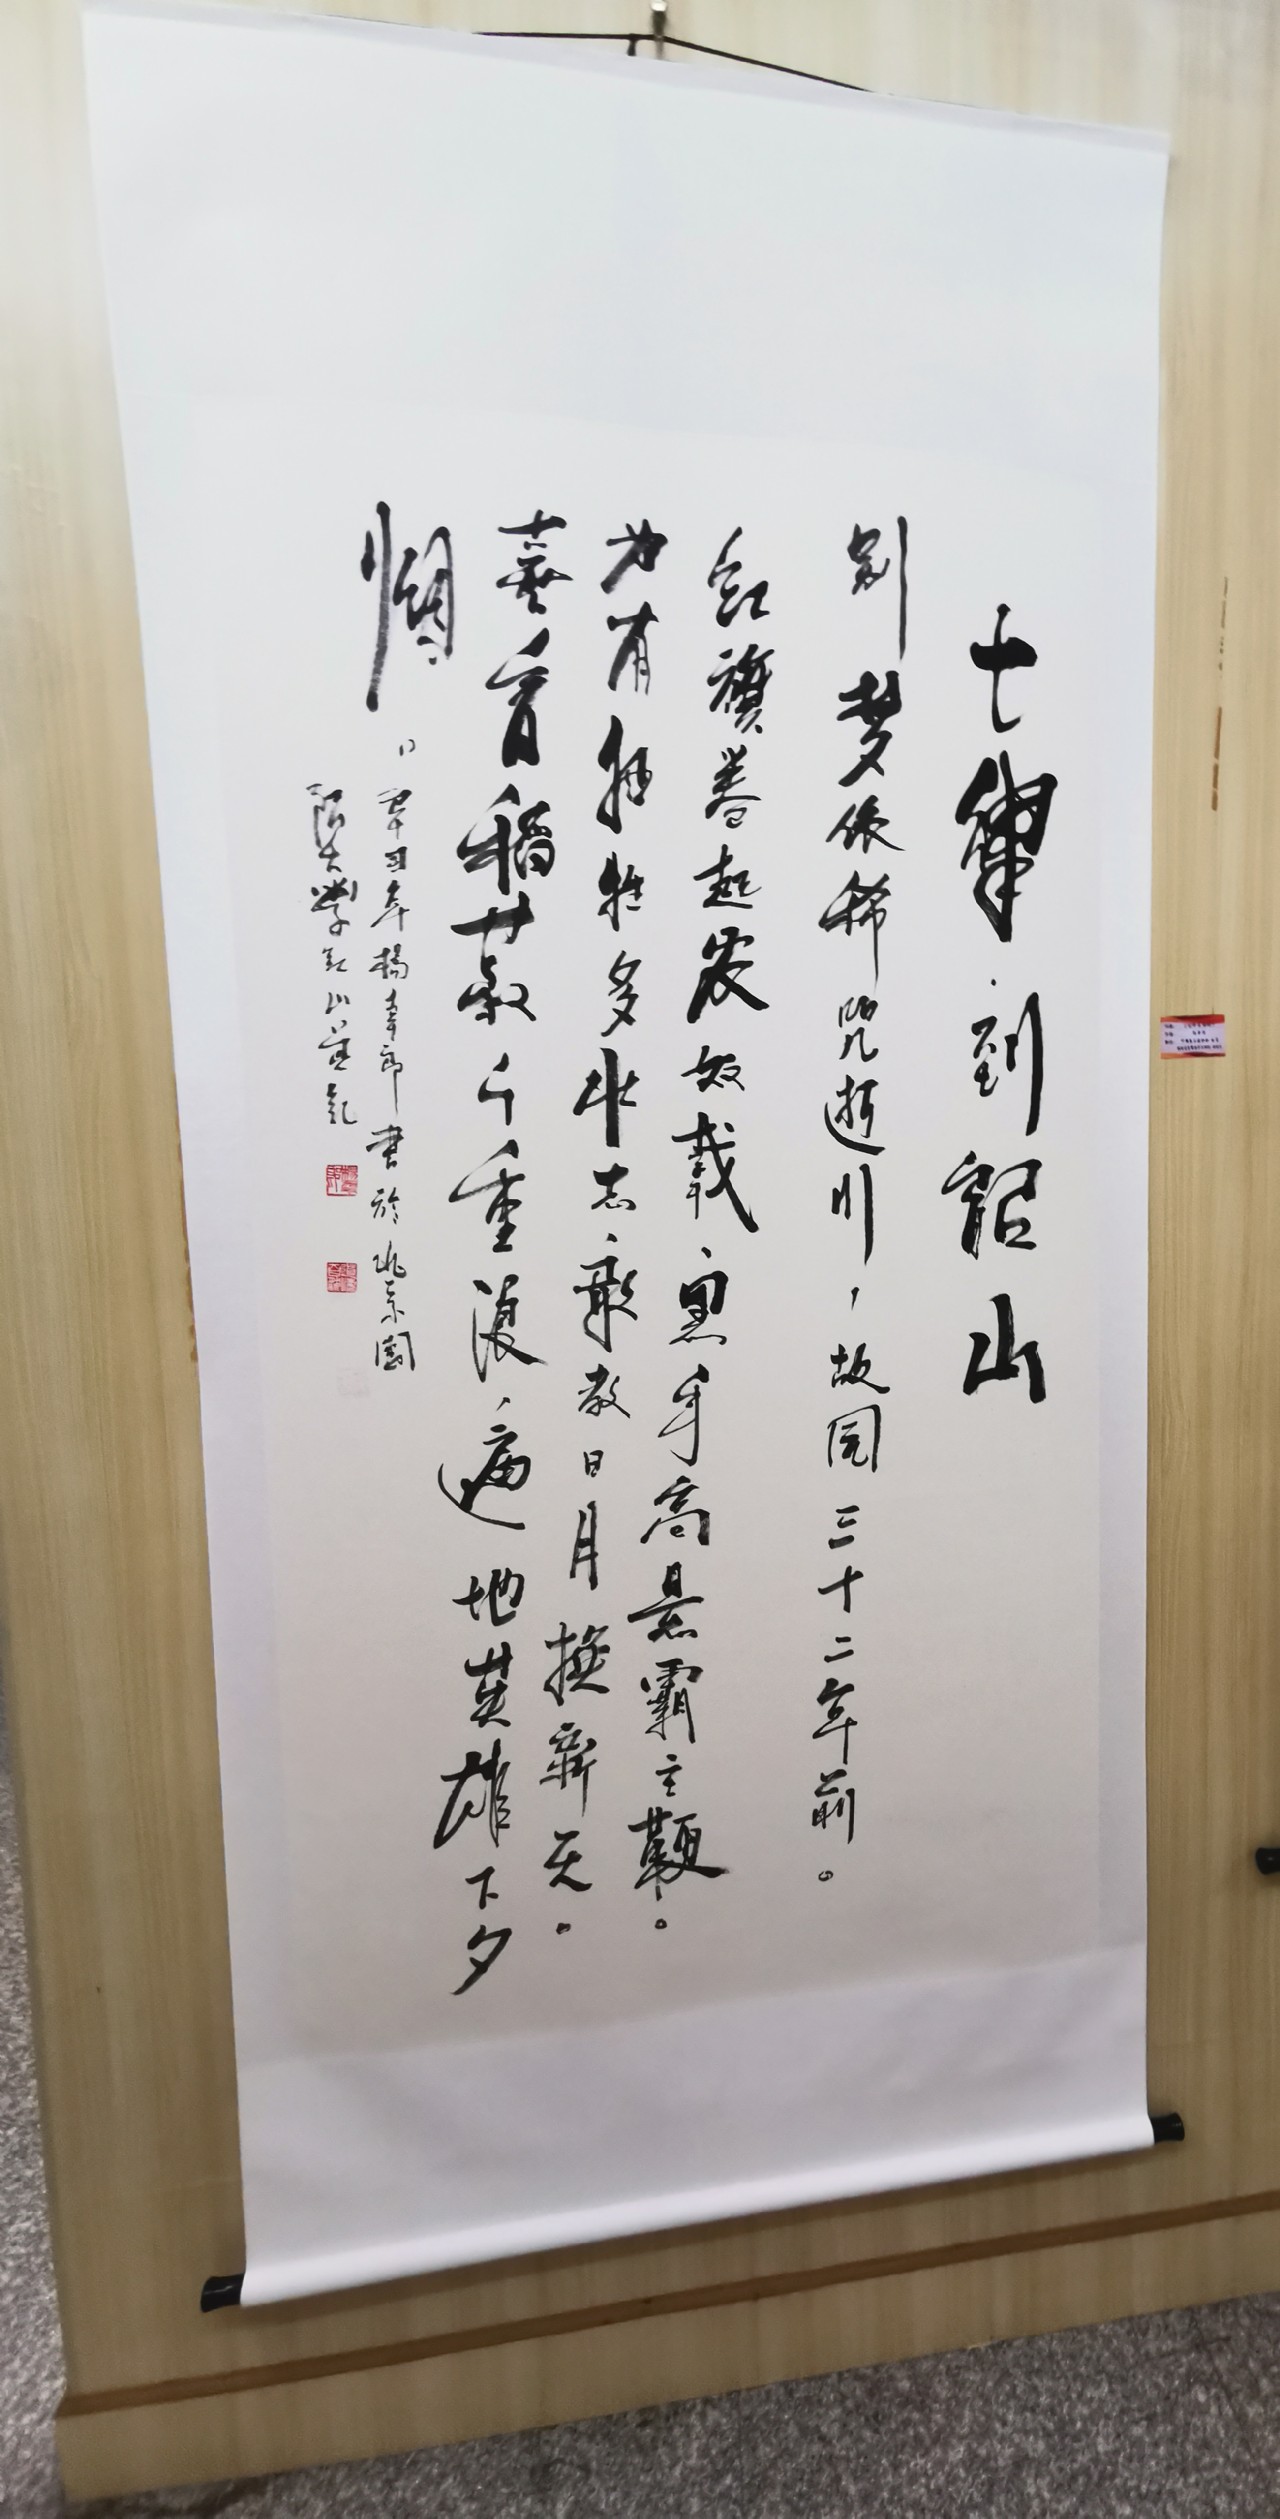 七律·到韶山
别梦依稀咒逝川，故园三十二年前。
红旗卷起农奴戟，黑手高悬霸主鞭。
为有牺牲多壮志，敢教日月换新天。
喜看稻菽千重浪，遍地英雄下夕
烟。辛丑年杨